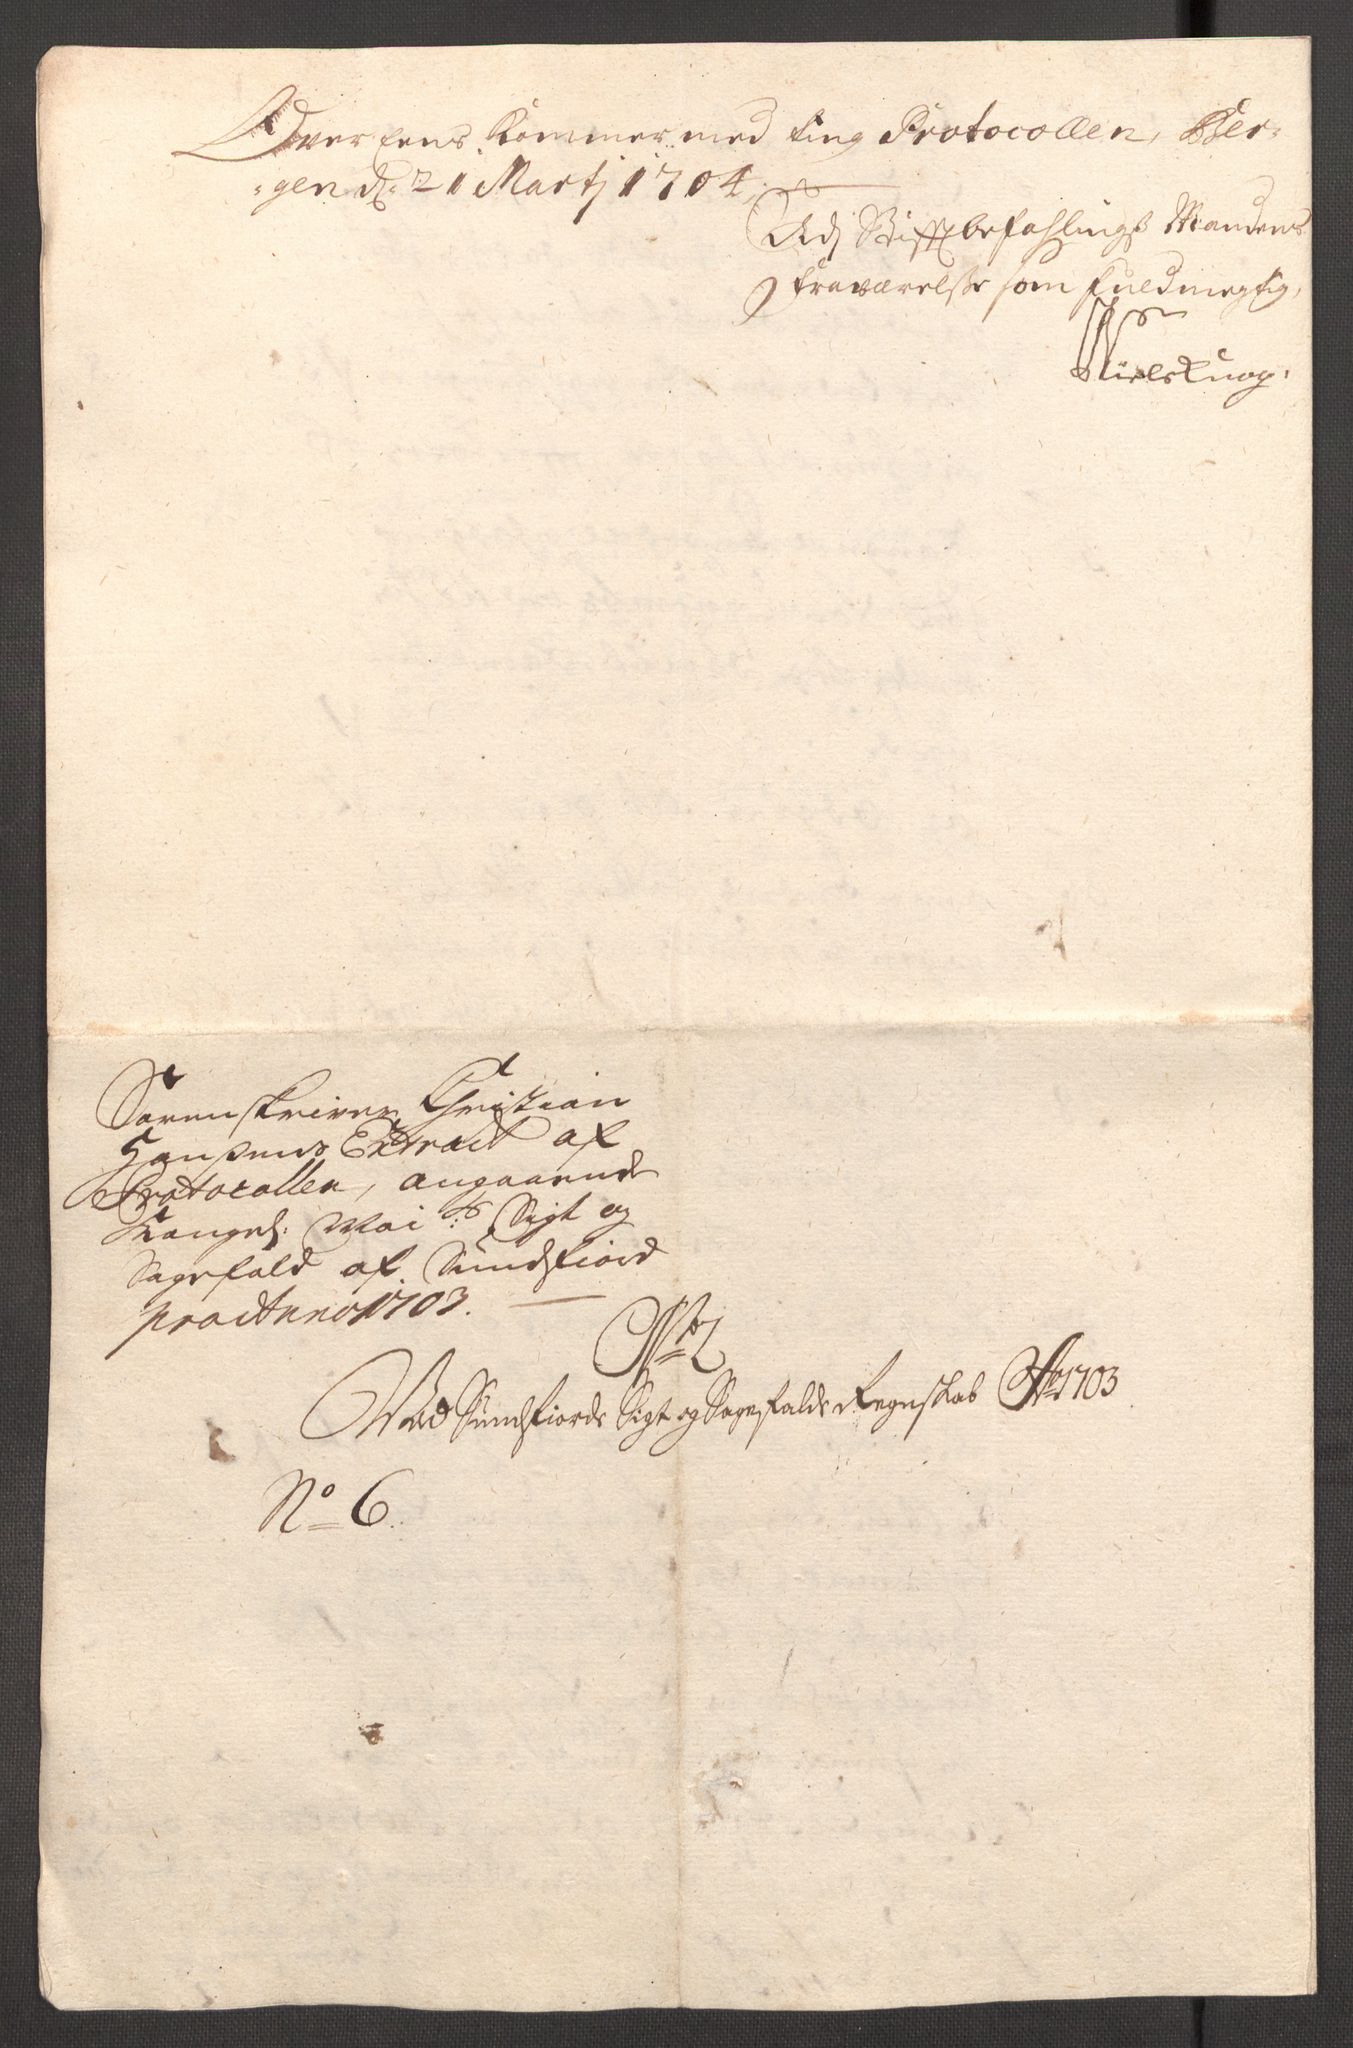 Over Eens kommer med ting Protocollen, Ber-
-gen d: 21 Martj 1704,
Udj Stifftbefahlingsß Mandens
fraværelße som fuldmegtig,
Niels Knag.
Sorenskriver Christian
Hanßens Extract af
Protocollen, angaaende
Kongel: Mai:ts Sigt og
Sagefald af Sundfiord
pro Anno 1703.
Ved Sundfiords Sigt og Sagefalds Regnskab Ao 1703
No 6.